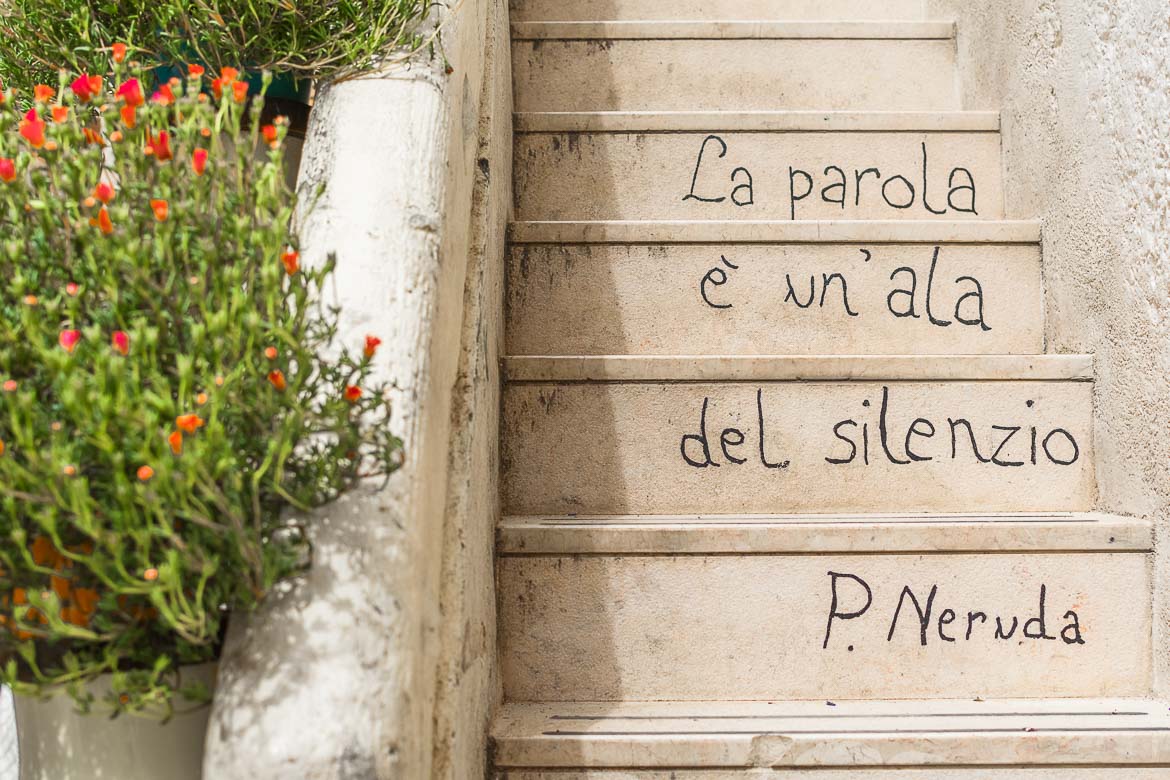 La parola
è un'ala
del silenzio
P. Neruda